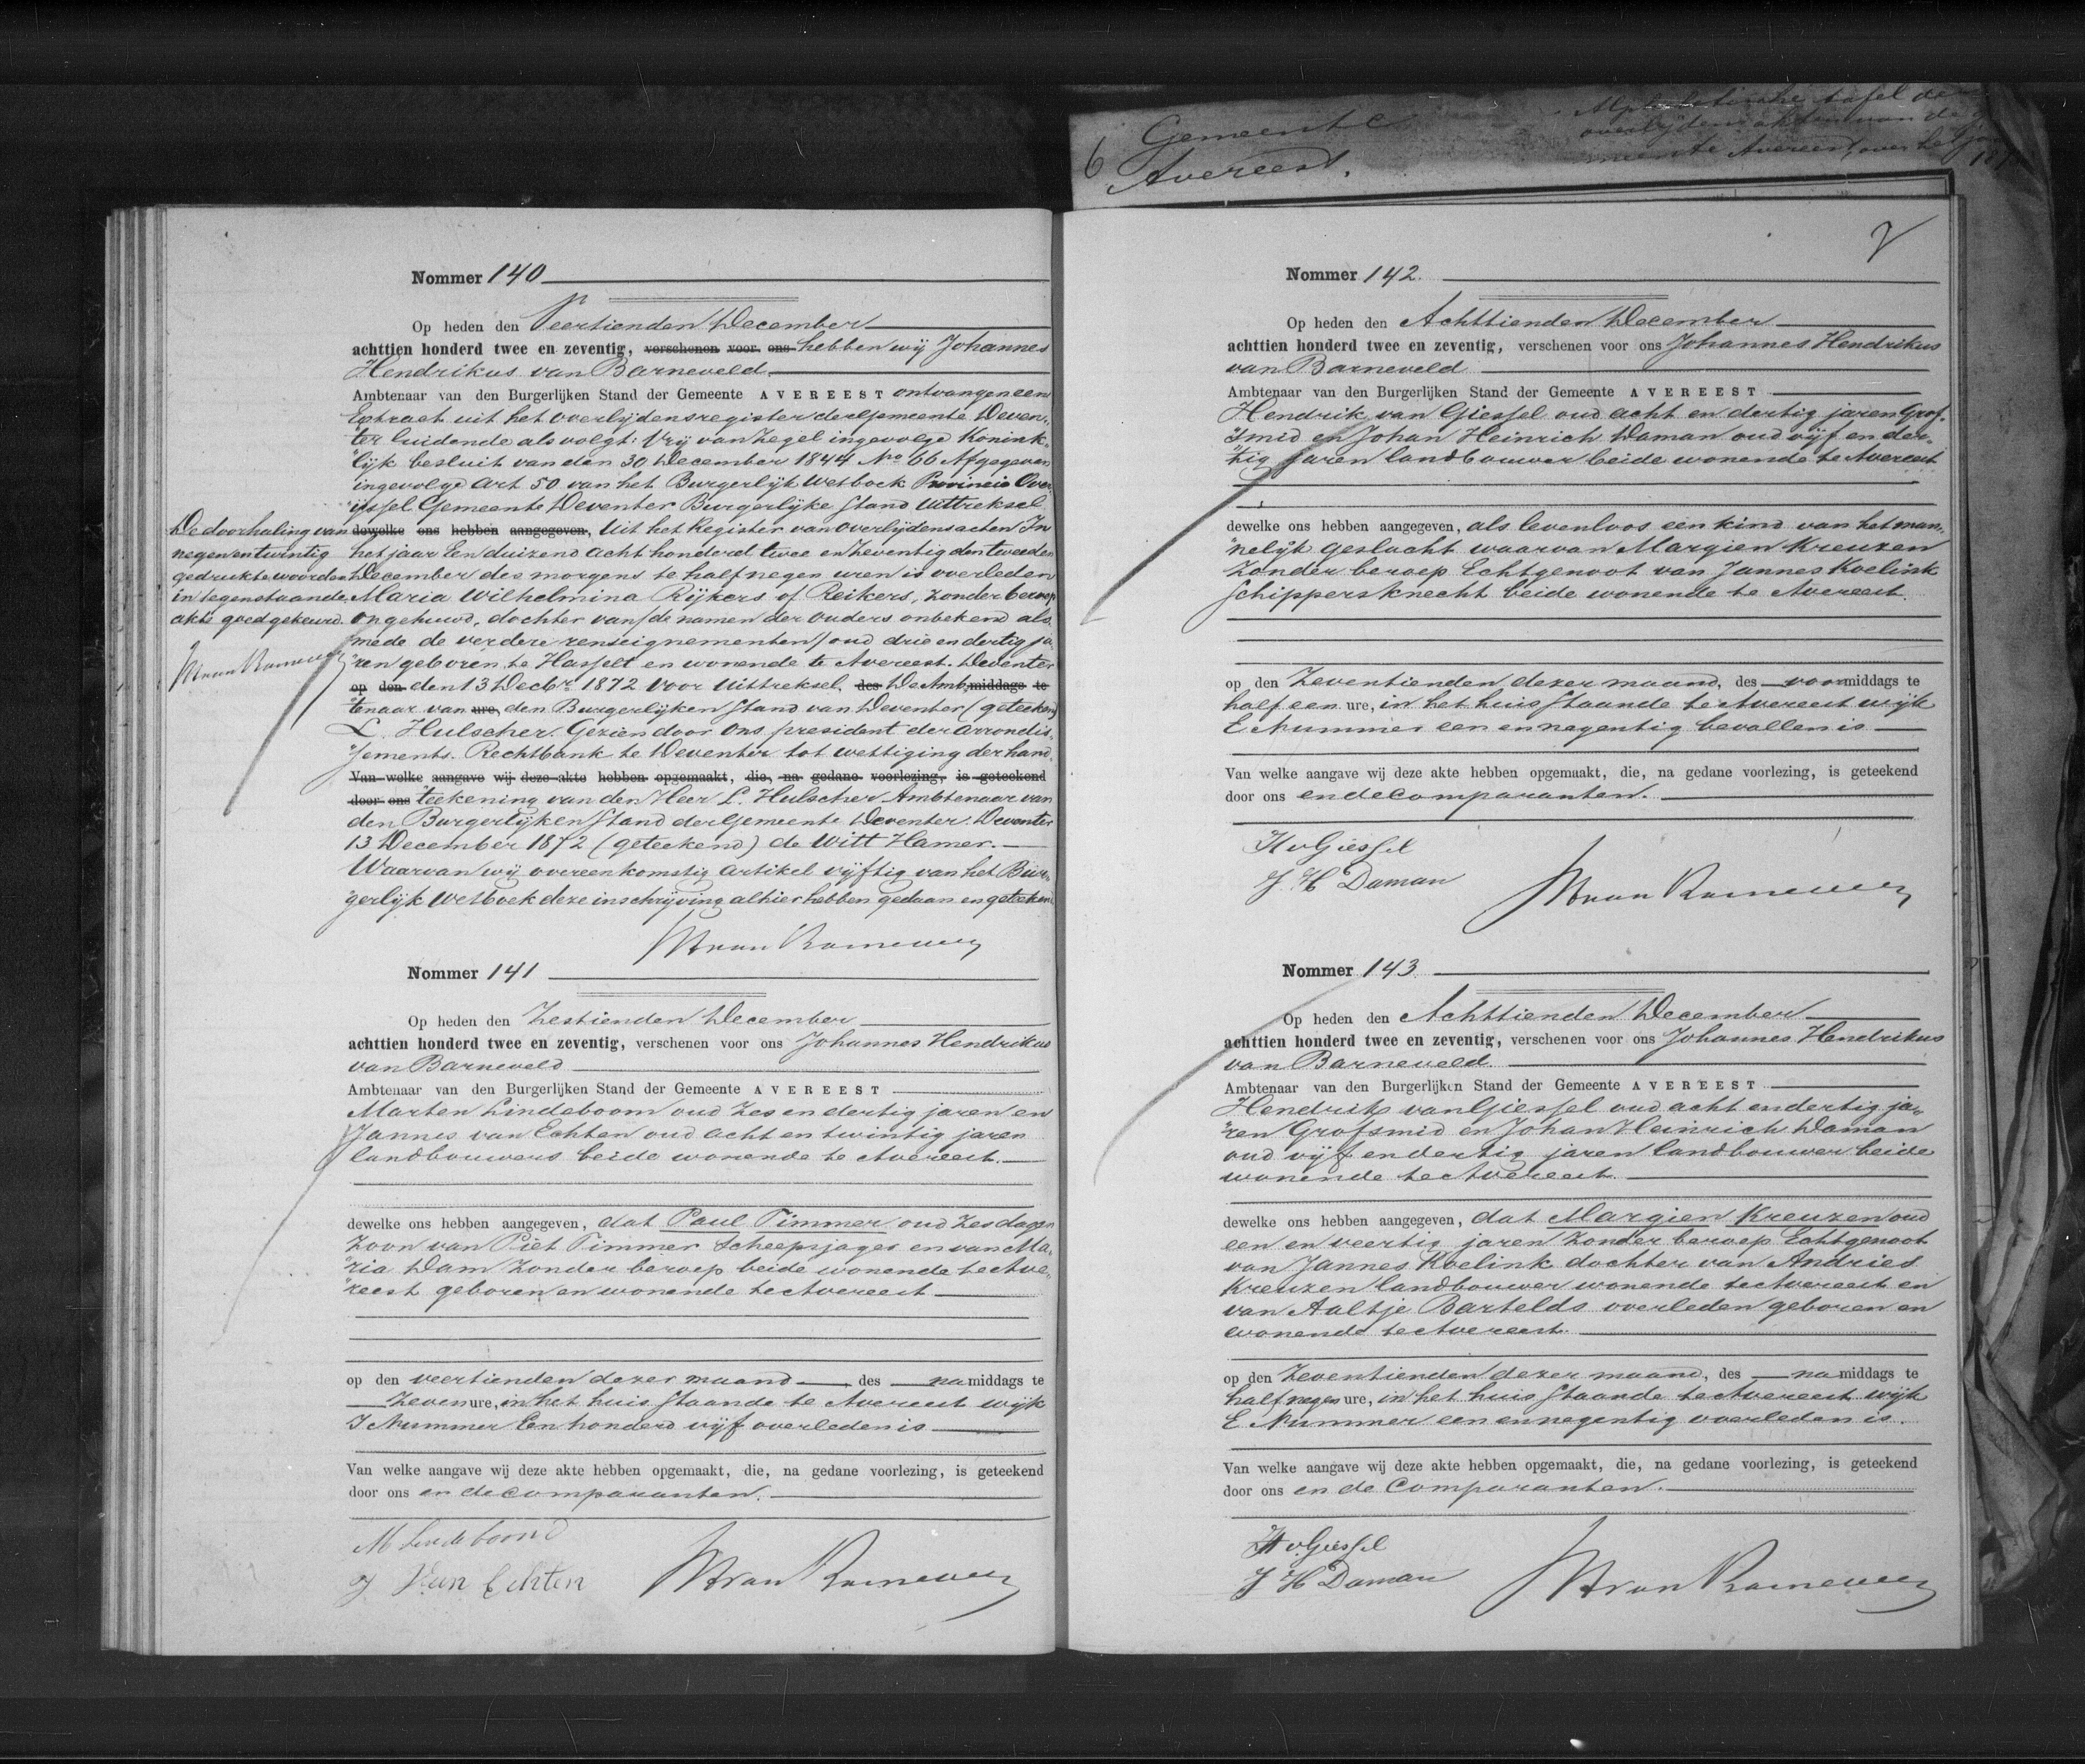 6 Gemeente
Avereest.
Alphabetische tafel der
overlijdensakten van de ge
meente Avereest, over het jaar
187
Nommer 140
Op heden den Veertienden December
achttien honderd twee en zeventig, verschenen voor ons hebben wij Johannes
Hendrikus van Barneveld
Ambtenaar van den Burgerlijken Stand der Gemeente AVEREEST ontvangen een
Extract uit het overlijdensregister der Gemeente Deven„
„ter luidende als volgt: Vrij van Zegel ingevolge Konink„
„lijk besluit van den 30 December 1844 No 66 Afgegeven
ingevolge Art 50 van het Burgerlijk Wetboek Provincie Over„
„ijssel Gemeente Deventer Burgerlijke Stand Uittreksel
dewelke ons hebben aangegeven, Uit het Register van Overlijdensacten In
het jaar Een duizend acht honderd twee en Zeventig den tweeden
December des morgens te half negen uren is overleden
Maria Wilhelmina Rijkers of Reikers, zonder beroep
ongehuwd, dochter van (de namen der ouders onbekend als
mede de verdere renseignementen) oud drie en dertig ja„
„ren geboren te Hasselt en wonende te Avereest. Deventer
op den den 13 Decbr 1872 Voor Uittreksel, des De Amb„middags te
„tenaar van ure, den Burgerlijken Stand van Deventer (geteekend)
L. Hulscher. Gezien door Ons president der Arrondis„
„sements. Rechtbank te Deventer tot wettiging der hand„
Van welke aangave wij deze akte hebben opgemaakt, die, na gedane voorlezing, is geteekend
door ons teekening van den Heer L. Hulscher Ambtenaar van
den Burgerlijken Stand der Gemeente Deventer. Deventer
13 December 1872 (geteekend) de Witt Hamer.
Waarvan wij overeenkomstig artikel vijftig van het Bur„
„gerlijk Wetboek deze inschrijving alhier hebben gedaan en geteekend
JHvan Barneveld
De doorhaling van
negen en twintig
gedrukte woorden
in tegenstaande
akte goedgekeurd.
JHvan Barneveld
Nommer 141
Op heden den Zestienden December
achttien honderd twee en zeventig, verschenen voor ons Johannes Hendrikus
van Barneveld
Ambtenaar van den Burgerlijken Stand der Gemeente AVEREEST
Marten Lindeboom oud Zes en dertig jaren en
Jannes van Echten oud acht en twintig jaren
landbouwers beide wonende te Avereest.
dewelke ons hebben aangegeven, dat Paul Timmer oud Zes dagen
Zoon van Piet Timmer Scheepsjager en van Ma„
„ria Dam Zonder beroep beide wonende te Ave„
„reest geboren en wonende te Avereest
op den veertienden dezer maand, des namiddags te
Zeven ure, in het huis Staande te Avereest wijk
I Nummer Een honderd vijf overleden is
Van welke aangave wij deze akte hebben opgemaakt, die, na gedane voorlezing, is geteekend
door ons en de comparanten.
M Lindeboom
J Van Echten
JHvan Barneveld
7
Nommer 142.
Op heden den Achttienden December
achttien honderd twee en zeventig, verschenen voor ons Johannes Hendrikus
van Barneveld
Ambtenaar van den Burgerlijken Stand der Gemeente AVEREEST
Hendrik van Giessel oud acht en dertig jaren Grof„
„smid en Johan Heinrich Daman oud vijf en der„
„tig jaren landbouwer beide wonende te Avereest
dewelke ons hebben aangegeven, als levenloos een kind van het man„
„nelijk geslacht waarvan Margien Kreuzen
Zonder beroep Echtgenoot van Jannes Koelink
Schippersknecht beide wonende te Avereest.
op den Zeventienden dezer maand, des voormiddags te
half een ure, in het huis Staande te Avereest wijk
E Nummer een en negentig bevallen is
Van welke aangave wij deze akte hebben opgemaakt, die, na gedane voorlezing, is geteekend
door ons en de comparanten.
HvGiessel
J H Daman
JHvan Barneveld
Nommer 143.
Op heden den Achttienden December
achttien honderd twee en zeventig, verschenen voor ons Johannes Hendrikus
van Barneveld
Ambtenaar van den Burgerlijken Stand der Gemeente AVEREEST
Hendrik van Giessel oud acht en dertig ja„
„ren Grofsmid en Johan Heinrich Daman
oud vijf en dertig jaren landbouwer beide
wonende te Avereest.
dewelke ons hebben aangegeven, dat Margien Kreuzen oud
een en veertig jaren Zonder beroep Echtgenoot
van Jannes Koelink dochter van Andries
Kreuzen landbouwer wonende te Avereest en
van Aaltje Bartelds overleden geboren en
wonende te Avereest.
op den Zeventienden dezer maand, des namiddags te
half negen ure, in het huis Staande te Avereest wijk
E Nummer een en negentig overleden is.
Van welke aangave wij deze akte hebben opgemaakt, die, na gedane voorlezing, is geteekend
door ons en de Comparanten.
HvGiessel
J H Daman
JHvan Barneveld